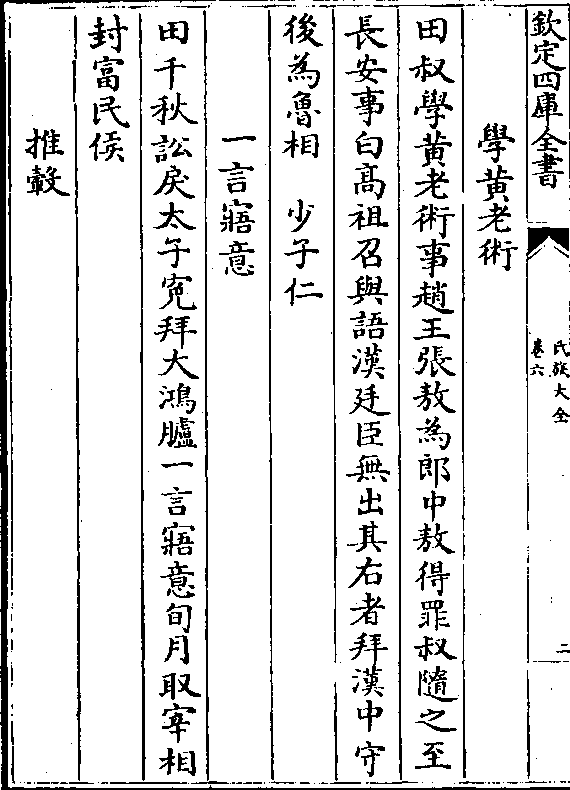 欽定四庫全書
氏族大全
卷六
二
學黄老術
田叔學黄老術事趙王張敖為郎中敖得罪叔隨之至
長安事白髙祖召與語漢廷臣無出其右者拜漢中守
後為魯相 少子仁
一言寤意
田千秋訟戾太子寃拜大鴻臚一言寤意旬月取宰相
封富民侯
推轂